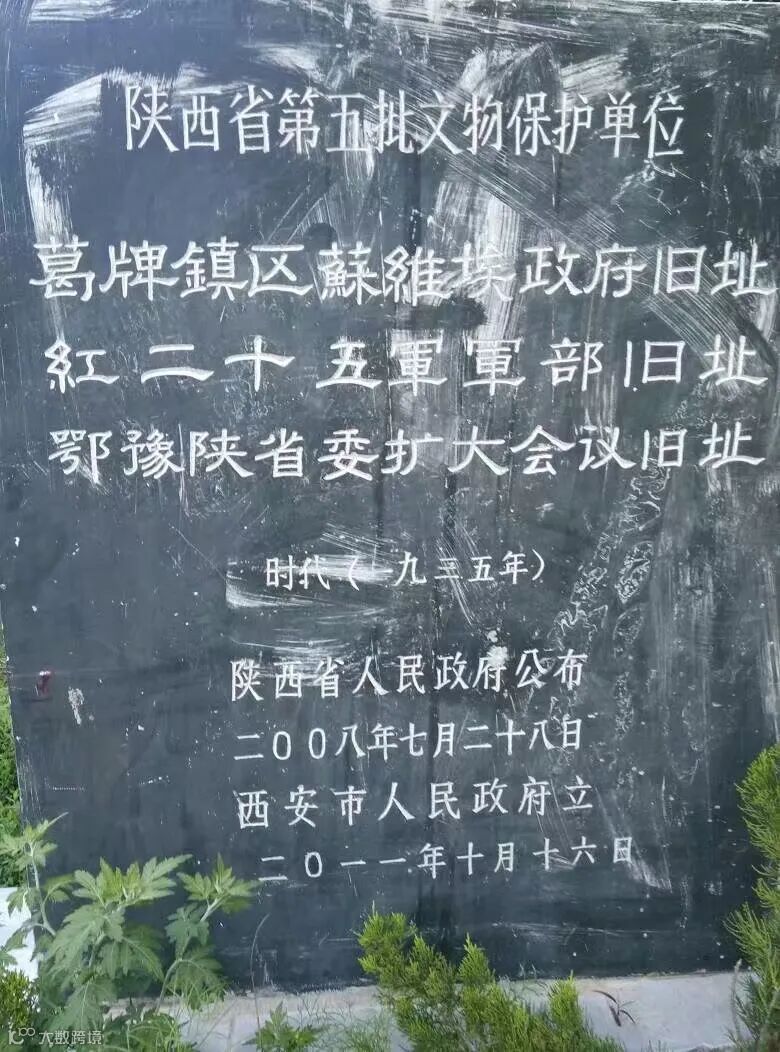 陕西省第五批文物保护单位
葛牌鎮区蘇維埃政府旧址
紅二十五軍軍部旧址
鄂豫陕省委扩大会议旧址
时代(一九三五年)
陕西省人民政府公布
二〇〇八年七月二十八日
西安市人民政府立
二〇一一年十月十六日
大数跨境